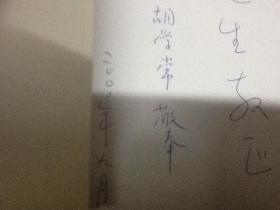 生教正
胡学常 敬奉
二〇〇七年九月